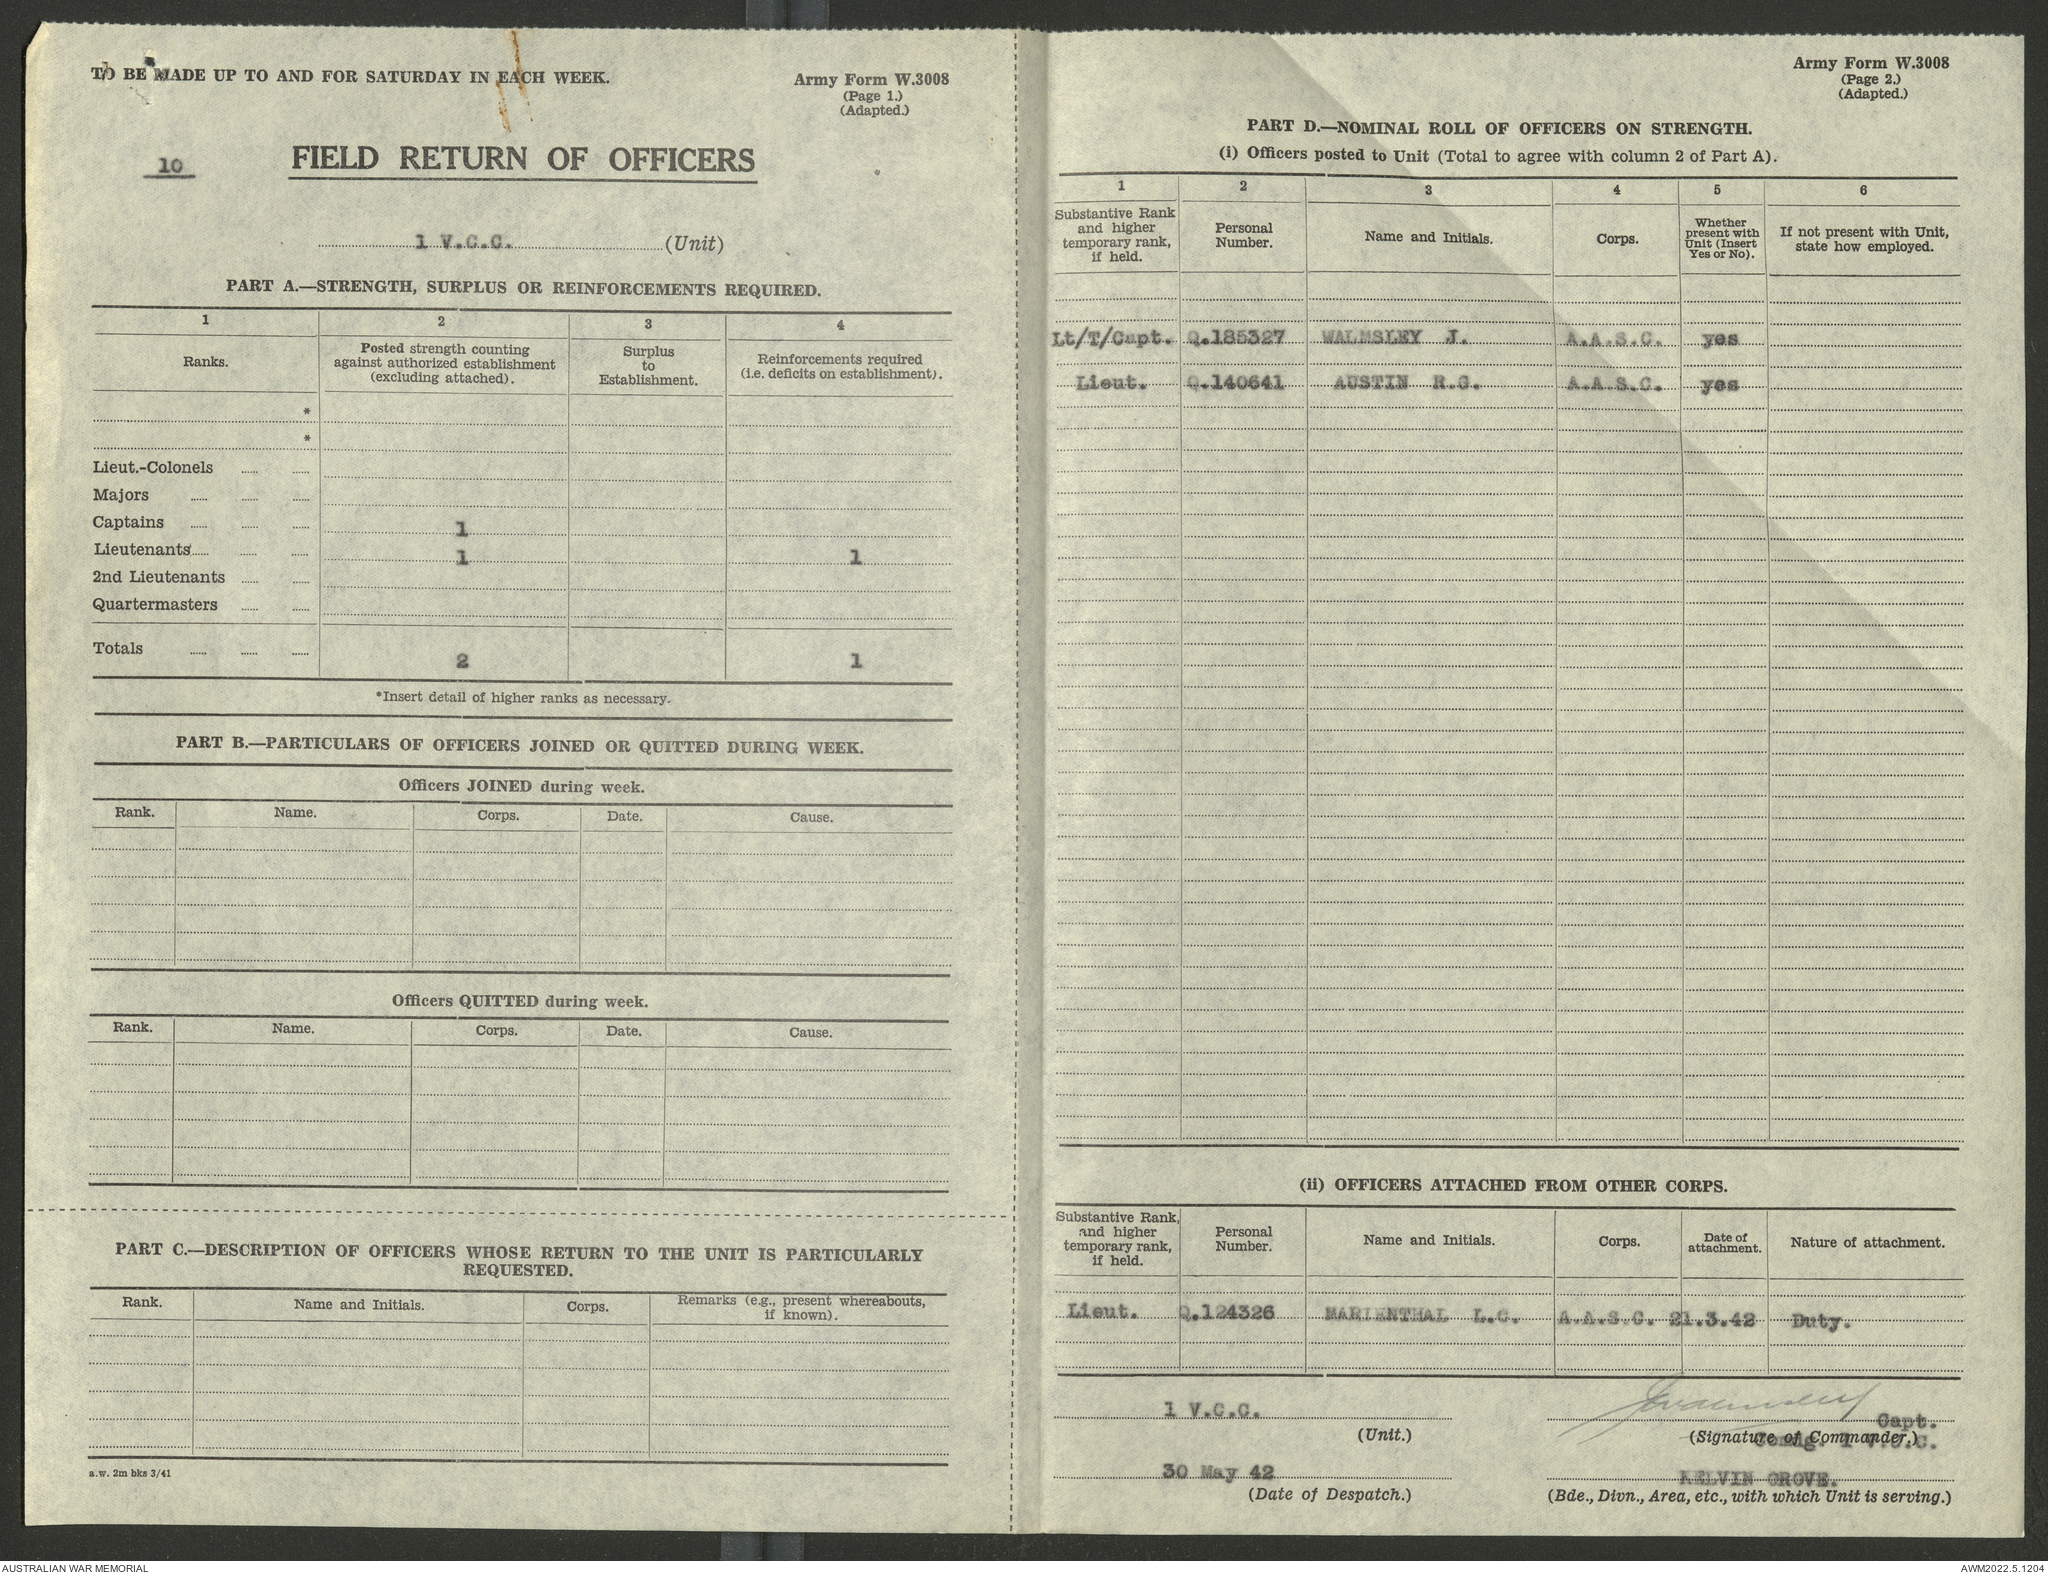 TO BE MADE UP TO AND FOR SATURDAY IN EACH WEEK.
Army Form W.3008
(Page 1.)
(Adapted.)
10
FIELD RETURN OF OFFICERS
1 V.C.C. (Unit)
PART A.—STRENGTH, SURPLUS OR REINFORCEMENTS REQUIRED.
1 2 3 4
Ranks. Posted strength counting against authorized establishment (excluding attached). Surplus to Establishment. Reinforcements required (i.e. deficits on establishment).
*
*
Lieut.-Colonels
Majors
Captains 1
Lieutenants 1 1
2nd Lieutenants
Quartermasters
Totals 2 1
*Insert detail of higher ranks as necessary.
PART B.—PARTICULARS OF OFFICERS JOINED OR QUITTED DURING WEEK.
Officers JOINED during week.
Rank. Name. Corps. Date. Cause.
Officers QUITTED during week.
Rank. Name. Corps. Date. Cause.
PART C.—DESCRIPTION OF OFFICERS WHOSE RETURN TO THE UNIT IS PARTICULARLY
REQUESTED.
Rank. Name and Initials. Corps. Remarks (e.g., present whereabouts, if known).
a.w. 2m bks 3/41
Army Form W.3008
(Page 2.)
(Adapted.)
PART D.—NOMINAL ROLL OF OFFICERS ON STRENGTH.
(i) Officers posted to Unit (Total to agree with column 2 of Part A).
1 2 3 4 5 6
Substantive Rank and higher temporary rank, if held. Personal Number. Name and Initials. Corps. Whether present with Unit (Insert Yes or No). If not present with Unit, state how employed.
Lt/T/Capt. Q.185327 WALMSLEY J. A.A.S.C. yes
Lieut. Q.140641 AUSTIN R.G. A.A.S.C. yes
(ii) OFFICERS ATTACHED FROM OTHER CORPS.
Substantive Rank, and higher temporary rank, if held. Personal Number. Name and Initials. Corps. Date of attachment. Nature of attachment.
Lieut. Q.124326 MARIENTHAL L.C. A.A.S.C. 21.3.42 Duty.
1 V.C.C.
(Unit.)
JWalmsley Capt.
(Signature of Commander.)
Comdg. 1 V.C.C.
30 May 42
(Date of Despatch.)
KELVIN GROVE.
(Bde., Divn., Area, etc., with which Unit is serving.)
AUSTRALIAN WAR MEMORIAL
AWM2022.5.1204